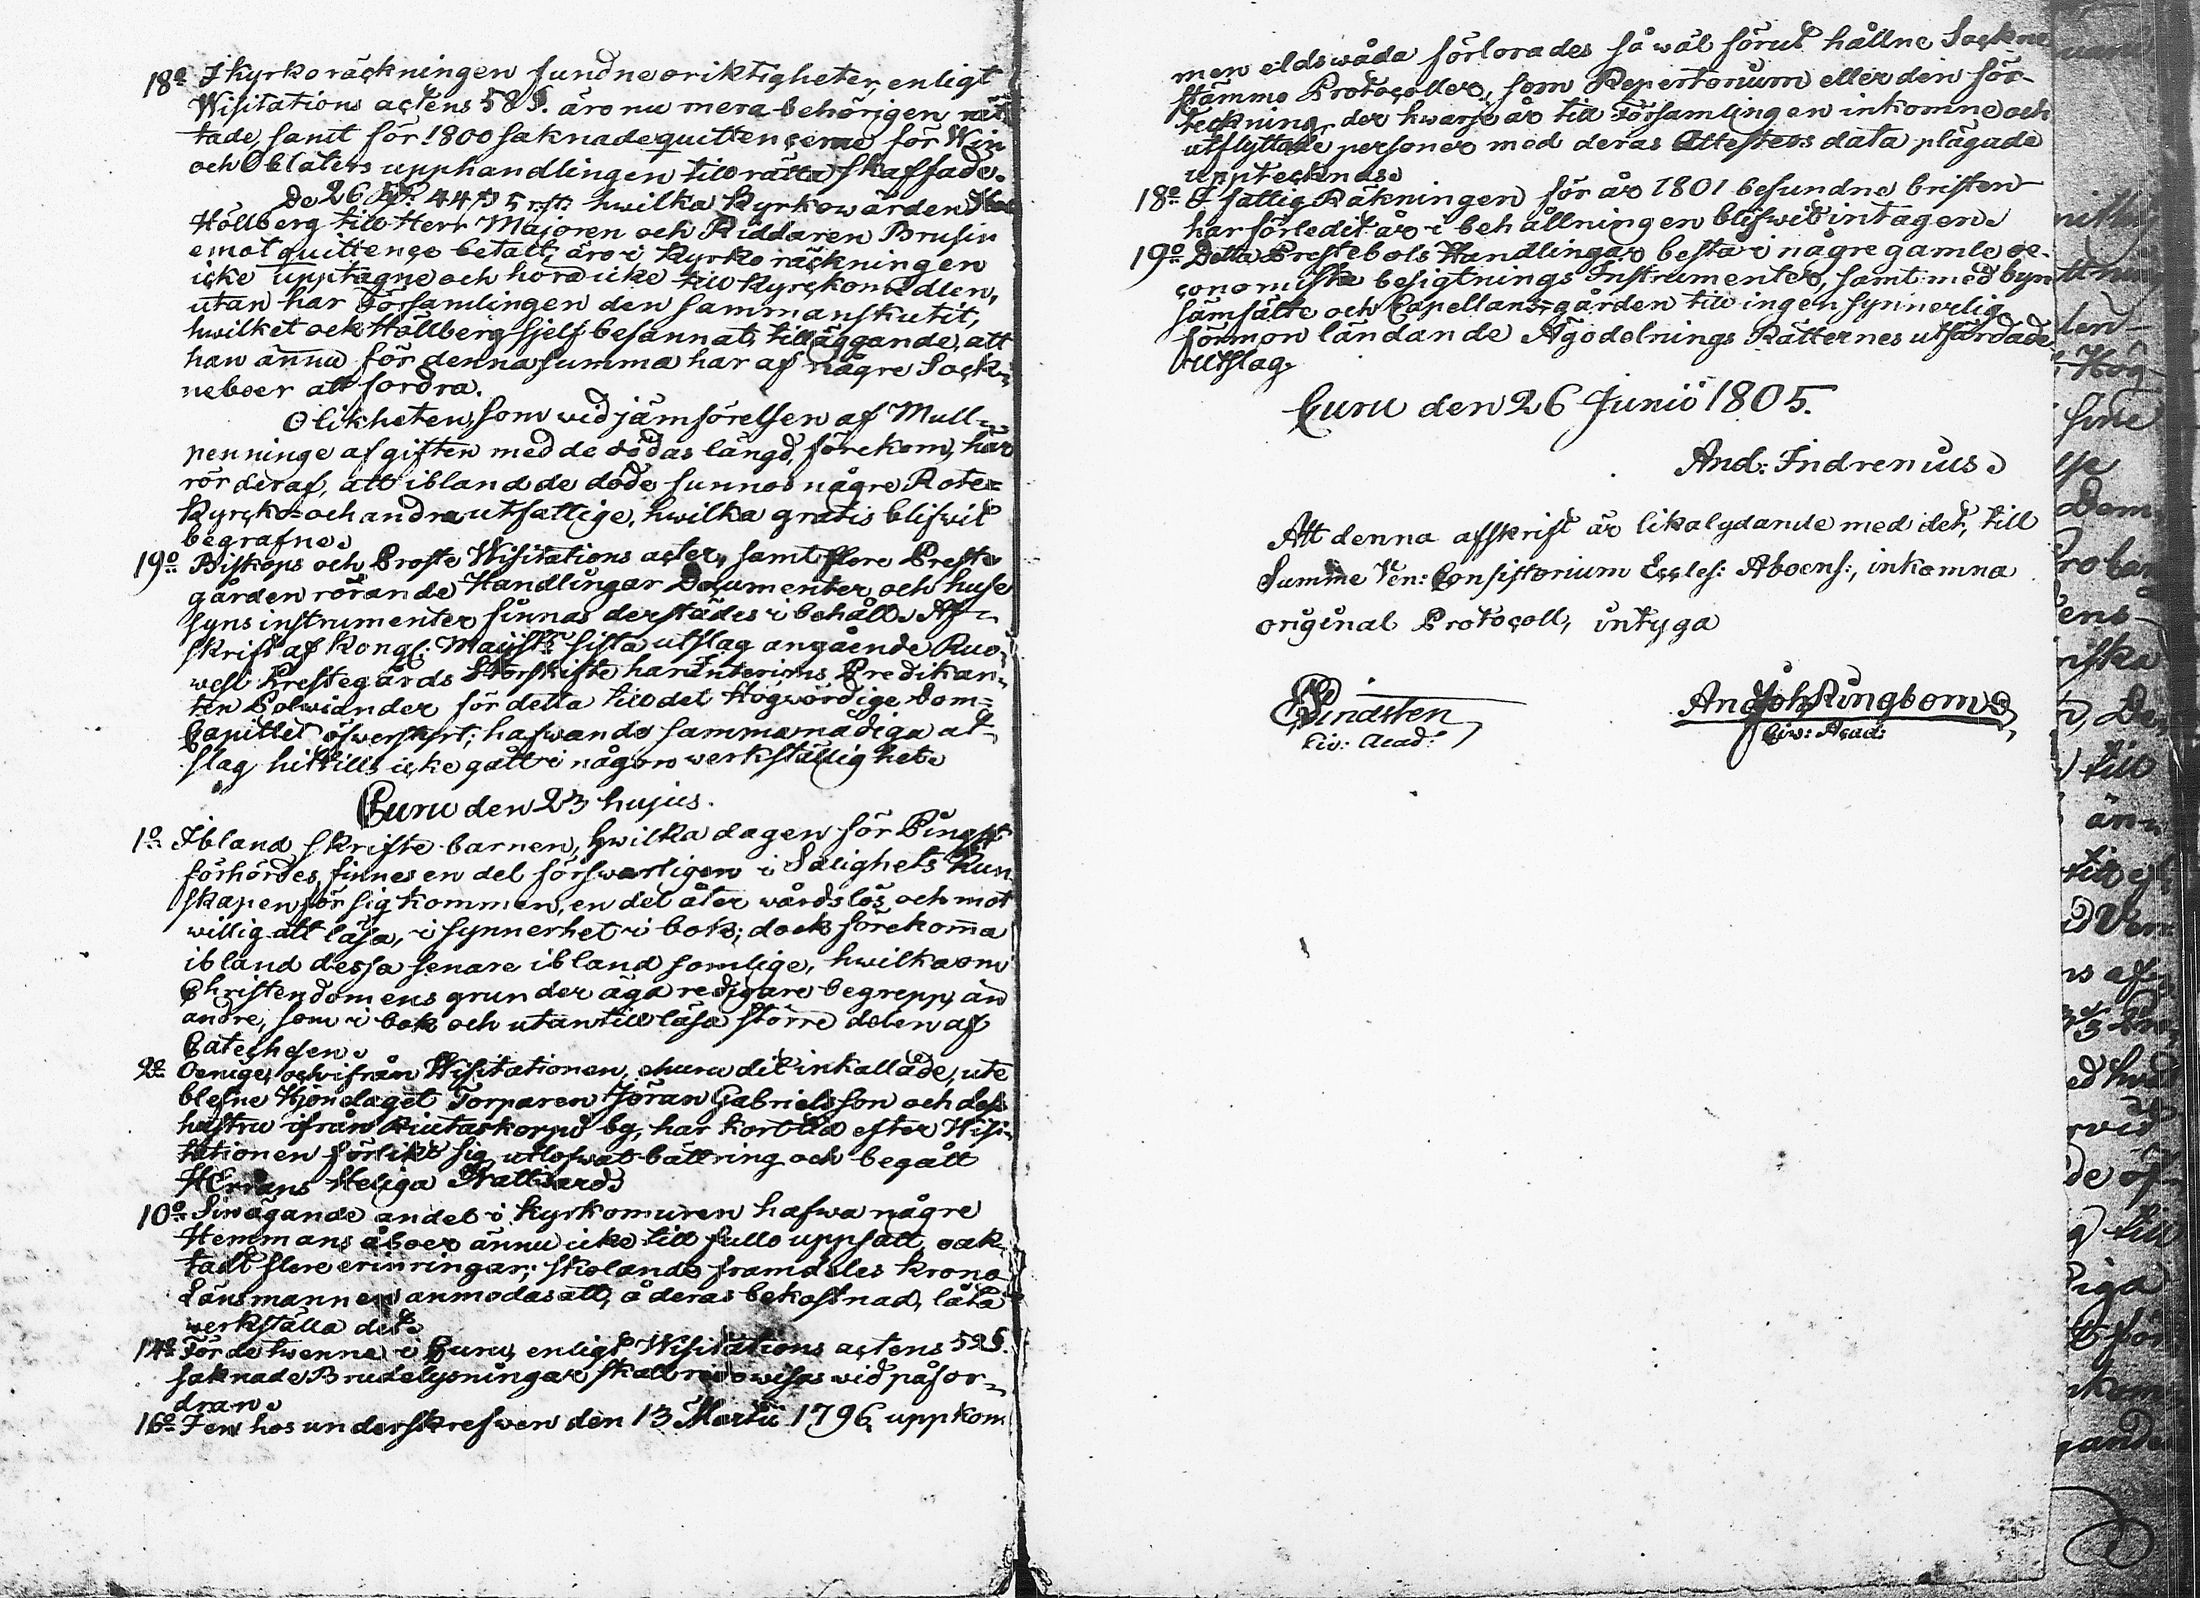 18º I kyrkoräckningen fundne oriktigheter, enligt
Wisitations actens 58 §. äro nu mera behörigen rät
tade, samt för 1800 saknade quittencerne för Win
och Oblaters upphandlingen till rätta skaffade.
De 26 44 5 hwilka Kyrkowärden
Hollberg till Herr Majoren och Riddaren Brusin
emot quittence betalt, äro i Kyrkoräckningen
icke upptagne och höra icke till Kyrckomedlen,
utan har Församlingen den sammanskutit,
hwilket ock Hållberg sjelf besannat, tilläggande, att
han ännu för denna summa har af någre Sock-
neboer att fordra.
Olikheten, som wid jämförelsen af Mull-
penninge afgiften med de dödas längd, förekom, här
rör deraf, att ibland de döde funnos någre Rote-
Kyrcko- och andra utfattige, hwilka gratis blifwit
begrafne.
19º Biskops och Proste Wisitations acter, samt flere Preste
gården rörande Handlingar Documenter och huse
syns instrumenter finnas derstädes i behåll. Af-
skrift af Kongl: Maijsts sista utslag angående Ruo-
wesi Prestegårds Storskifte har Interims Predikan-
ten Polwiander för detta till det Högwördige Dom-
Capitlet öfwersändt; hafwande samma nådiga ut-
slag hittills icke gått i någon werkställighet.
Curu den 23 hujus.
1º Ibland skrifte barnen, hwilka dagen för Pingst
förhördes, finnes en del förswarligen i Salighets Kun
skapen för sig kommen, en del åter wårdslös och mot
willig att läsa, i synnerhet i bok; dock förekomma
ibland dessa senare ibland somlige, hwilka om
Christendomens grunder äga redigare begrepp, än
andre, som i bok och utantill läsa större delen af
Catechesen.
2º Oenige, och ifrån Wisitationen, ehuru dit inkallade, ute
blefne Hjonelaget Torparen Jöran Gabrielsson och dess
hustru ifrån Riutaskorpi by, har kort tid efter Wisi-
tationen förlikt sig, utlofwat bättring och begått
HErrans Heliga Nattward.
10º Sin ägande andel i Kyrkomuren hafwa någre
Hemmans åboer ännu icke till fullo uppsatt, oak-
tadt flere erinringar; skolande framdeles Krono
Länsmannen anmodas att, å deras bekostnad, låta
werkställa det.
14º För de twenne i Curu, enligt Wisitations actens 52 §.
saknade Brudelysningar skall redowisas wid påfor-
dran.
16º I en hos underskrefwen den 13 Martii 1796 uppkom
men eldswåda förlorades så wäl förut hållne Sockne
stämmo Protocoller, som Repertorium eller den för-
teckning, der hwarje år till Församlingen inkomne och
utflyttade personer med deras Attesters data plägade
upptecknas.
18º I fattig Räkningen för år 1801 befundne bristen
har förledit år i behållningen blifwit intagen.
19º Detta Prestebols Handlingar bestå i någre gamle oe-
conomiska besigtnings Instrumenter, samt med byn
samfälte och Capellans-gården till ingen synnerlig
förmon ländande Ägodelnings Rätternes utfärdade
Utslag.
Curu den 26 Junii 1805.
And: Indrenius.
Att denna afskrift är lika lydande med det, till
Summe Ven: Consistorium Eccles: Aboens:, inkomna
original Protocoll, intyga
Lindsten
Civ: Acad:
And Joh Ringbom
Civ: Acad: